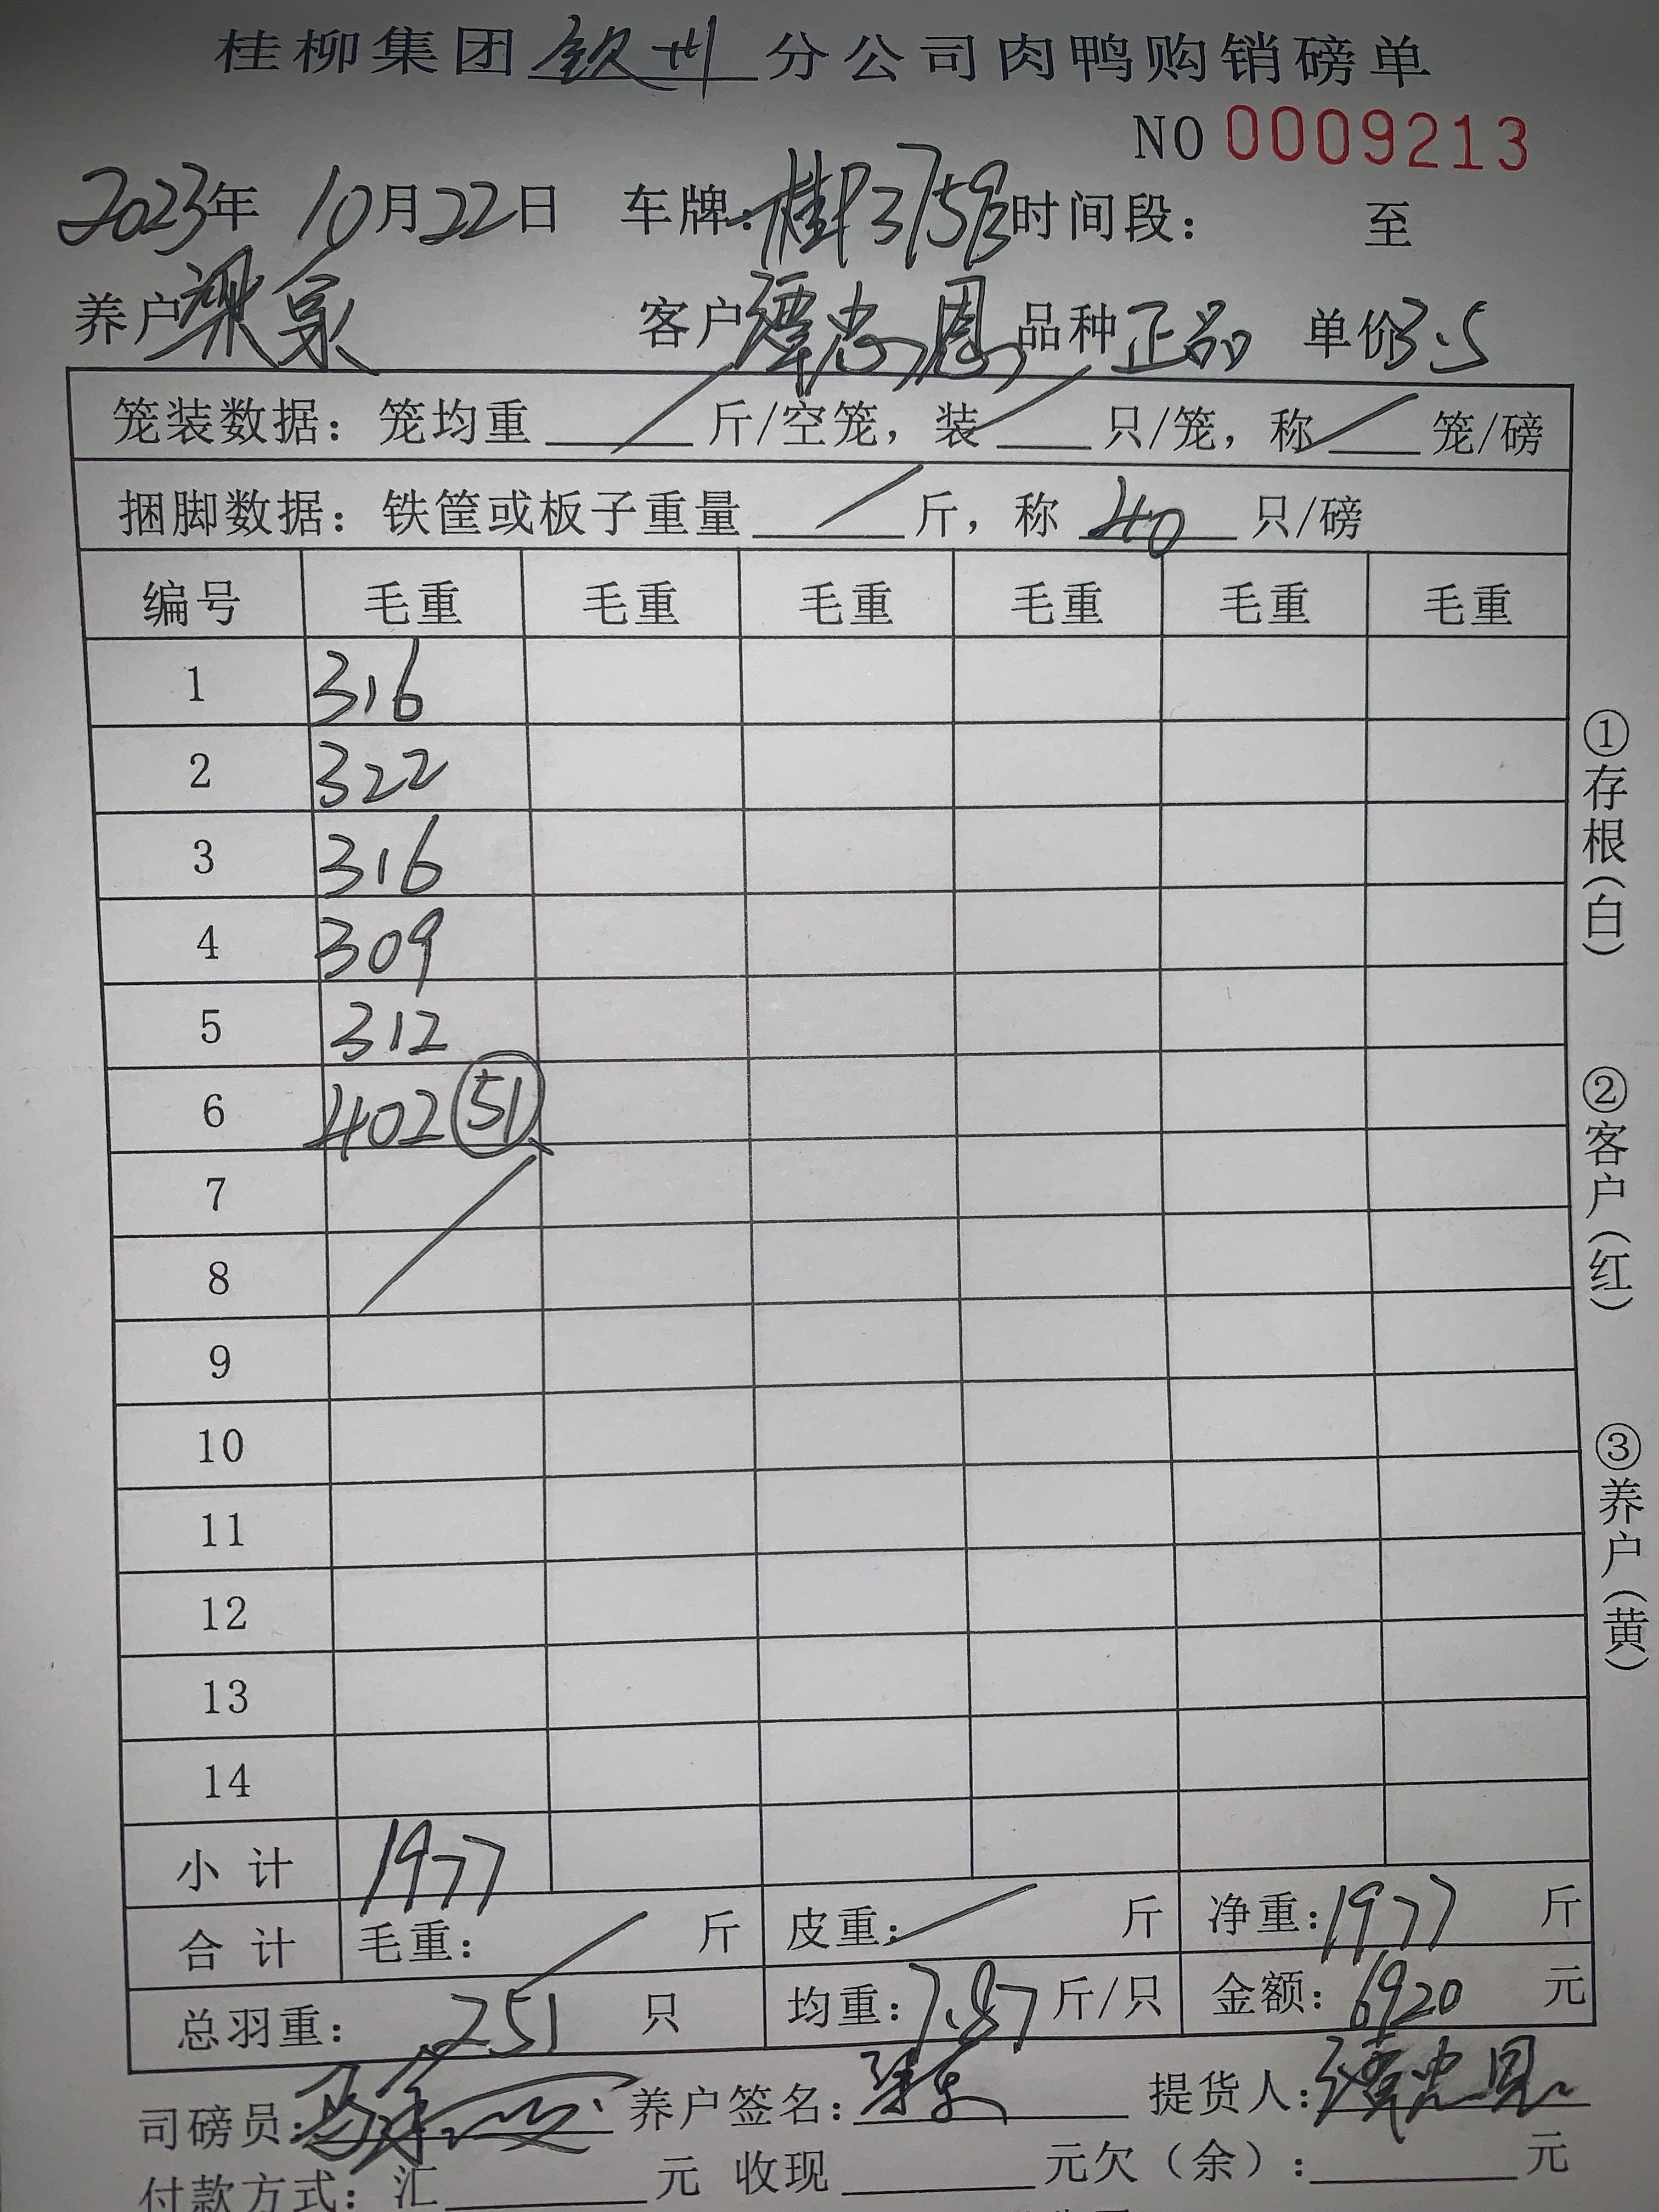 桂柳集团钦州分公司肉鸭购销磅单
NO 0009213
2023年10月22日 车牌: 时间段: 至
养户 梁 客户 谭忠恩 品种 正品 单价3.5
笼装数据: 笼均重 / 斤/空笼, 装 / 只/笼, 称 / 笼/磅
捆脚数据: 铁筐或板子重量 / 斤, 称 40 只/磅
编号 毛重 毛重 毛重 毛重 毛重 毛重
1 316
2 322
3 316
4 309
5 312
6 402 (51)
7
8
9
10
11
12
13
14
小计 1977
合计 毛重: / 斤 皮重: / 斤 净重: 1977 斤
总羽重: 251 只 均重: 7.87 斤/只 金额: 6920 元
司磅员: 养户签名: 提货人: 谭忠恩
付款方式: 汇 元 收现 元欠(余): 元
①存根(白)
②客户(红)
③养户(黄)